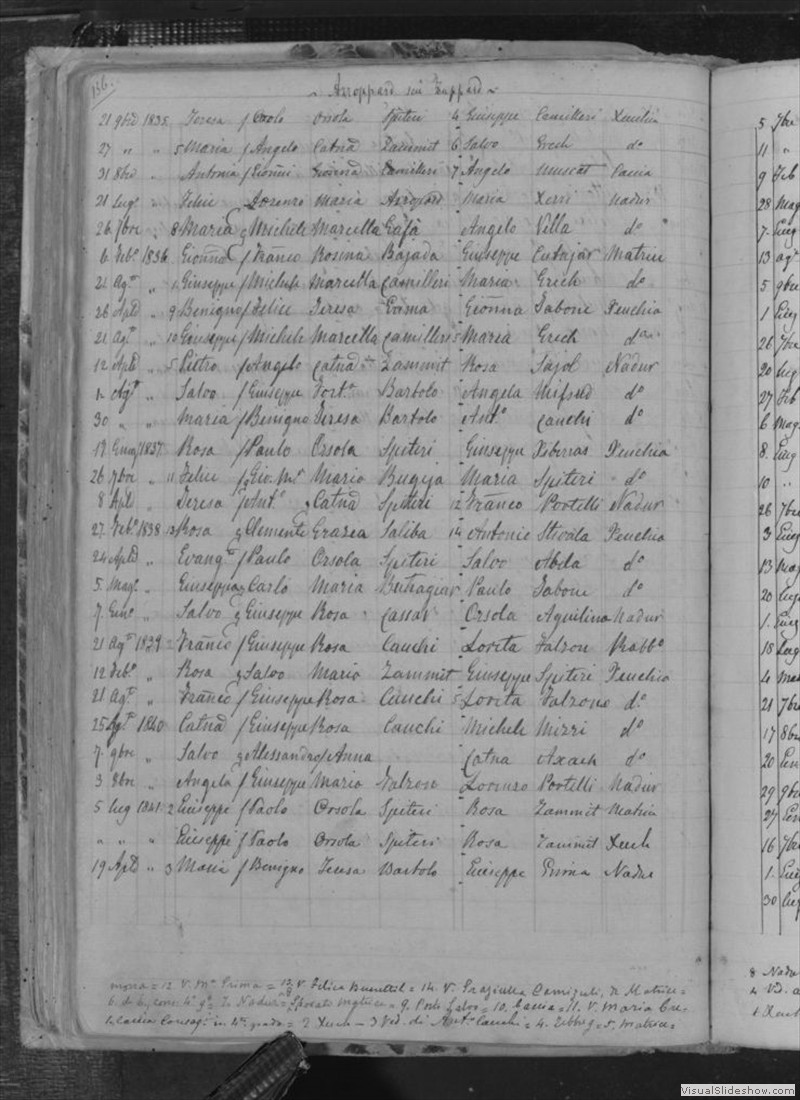 156.
~ Azzoppard siu Zuppard ~
21 9bre 1835. Teresa f Paolo Orsola Spiteri 4 Giuseppe Camilleri Xeuchia
27 " " 5 Maria f Angelo Catnã Zammit 6 Salvo Grech do
31 8bre " Antonia f Gionni Gionna Camilleri 7 Angelo Muscat Caccia
21 Lugo " Felic Lorenzo Maria Azzopard Maria Xerri Nadur
26 7bre 8 Maria g Michele Marcella Gafà Angelo Vella do
6 Febo 1836. Gionna f Franco Rosina Bajada Giuseppe Cutajar Matrice
21 Ago " 1 Giuseppe f Michele Marcella Camilleri Maria Grech do
26 Aple " 9 Benigno f Felice Teresa Gionna Tabone Xeuchia
21 Ago " 10 Giuseppe f Michele Marcella Camilleri 5 Maria Grech do
12 Aple " 5 Pietro f Angelo Catnã Zammit Rosa Nadur
1 Ago " Salvo f Giuseppe Forta Bartolo Angela Mifsud do
30 " " Maria f Benigno Teresa Bartolo Anto Cauchi do
19 1837. Rosa f Paulo Orsola Spiteri Giuseppe Xiberras Xeuchia
26 7bre " 11 Felice f Gio. Ma Maria Bugeja Maria Spiteri do
8 Aple " Teresa f Anto Catnã Spiteri 12 Franco Portelli Nadur
27 Febo 1838 13 Rosa g Clemente Grazia Saliba 14 Antonio Stivala Xeuchia
24 Aple " Evanga f Paulo Orsola Spiteri Salvo Abela do
5. Mago " Giuseppa g Carlo Maria Buttagiar Paulo Tabone do
7. Geno " Salvo g Giuseppe Rosa Cassar Orsola Aquilina Nadur
21 Ago 1839 Franco f Giuseppe Rosa Cauchi Lorita Falzon Rabbo
12 Febo " Rosa g Salvo Maria Zammit Giuseppe Spiteri Xeuchia
21 Ago " Franco f Giuseppe Rosa Cauchi 5 Lorita Falzone do
25 Ago 1840 Catnã f Giuseppe Rosa Cauchi Michele Mizzi do
7. 9bre " Salvo g Alessandro f Anna Catna Axach do
3 8bre " Angela f Giuseppe Maria Falzon Lorenzo Portelli Nadur
5 Lug 1841 2 Giuseppe f Paolo Orsola Spiteri Rosa Zammit Matrice
" " " Giuseppe f Paolo Orsola Spiteri Rosa Zammit Xeuch
19 Aple " 3 Maria f Benigno Teresa Bartolo Giuseppe Grima Nadur
mona = 12 V. Ma Grima = 13 V. Felica = 14. V. Graziulla Camigeli, Matrice =
6. cons. 4o go = 7. Nadur = 8 Matrice = 9. Porto Salvo = 10. Caccia = 11. V. Maria
1. Caccia Consago in 4to grado = 2 Xeuch - 3 Ved. di Anto Cauchi = 4. Zebbug = 5. Matrice =
5 7bre
11 "
9 Feb
28 Mag
7. Lug
13 ago
5 9bre
1 Lug
26 7bre
20 Lug
27 Feb
6 Mag
8. Lug
10 "
26 7bre
3 Lug
13 Mag
20 Lug
1. Lug
15 Lug
4 Mar
21 7bre
17 8bre
20 Gen
29 9bre
27 Gen
16 7bre
1. Lug
30 Lug
8 Nadu
4 Vid.
1 Xeu
VisualSlideshow.com